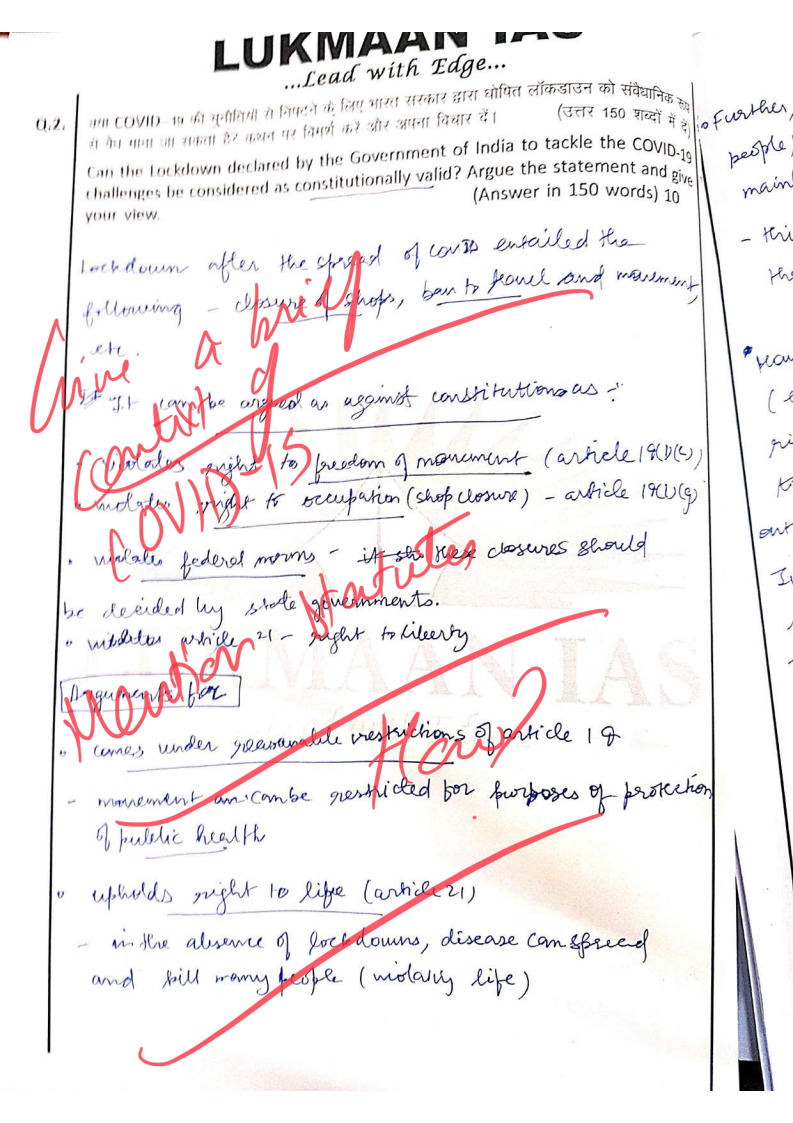 LUKMAAN IAS
...Lead with Edge...
Q.2. क्या COVID-19 की चुनौतियों से निपटने के लिए भारत सरकार द्वारा घोषित लॉकडाउन को संवैधानिक रूप
से वैध माना जा सकता है? कथन पर विमर्श करें और अपना विचार दें। (उत्तर 150 शब्दों में दें)
Can the Lockdown declared by the Government of India to tackle the COVID-19
challenges be considered as constitutionally valid? Argue the statement and give
your view. (Answer in 150 words) 10
Lockdown after the spread of covid entailed the
following - closure of shops, ban to travel and movement,
etc.
It can be argued as against constitution as :-
• violates right to freedom of movement (article 19(1)(c))
• violates right to occupation (shop closure) - article 19(1)(g)
• violates federal norms - closures should
be decided by state governments.
• violates article 21 - right to liberty
Arguments for
• comes under reasonable restrictions of article 19
- movement can be restricted for purposes of protection
of public health
• upholds right to life (article 21)
- in the absence of lockdowns, disease can spread
and kill many people (violating life)
Give a brief
context of
COVID-19
Mention Statutes
How?
Further,
people
main
- thi
the
Hou
(
ri
t
ent
I
MAAN IAS